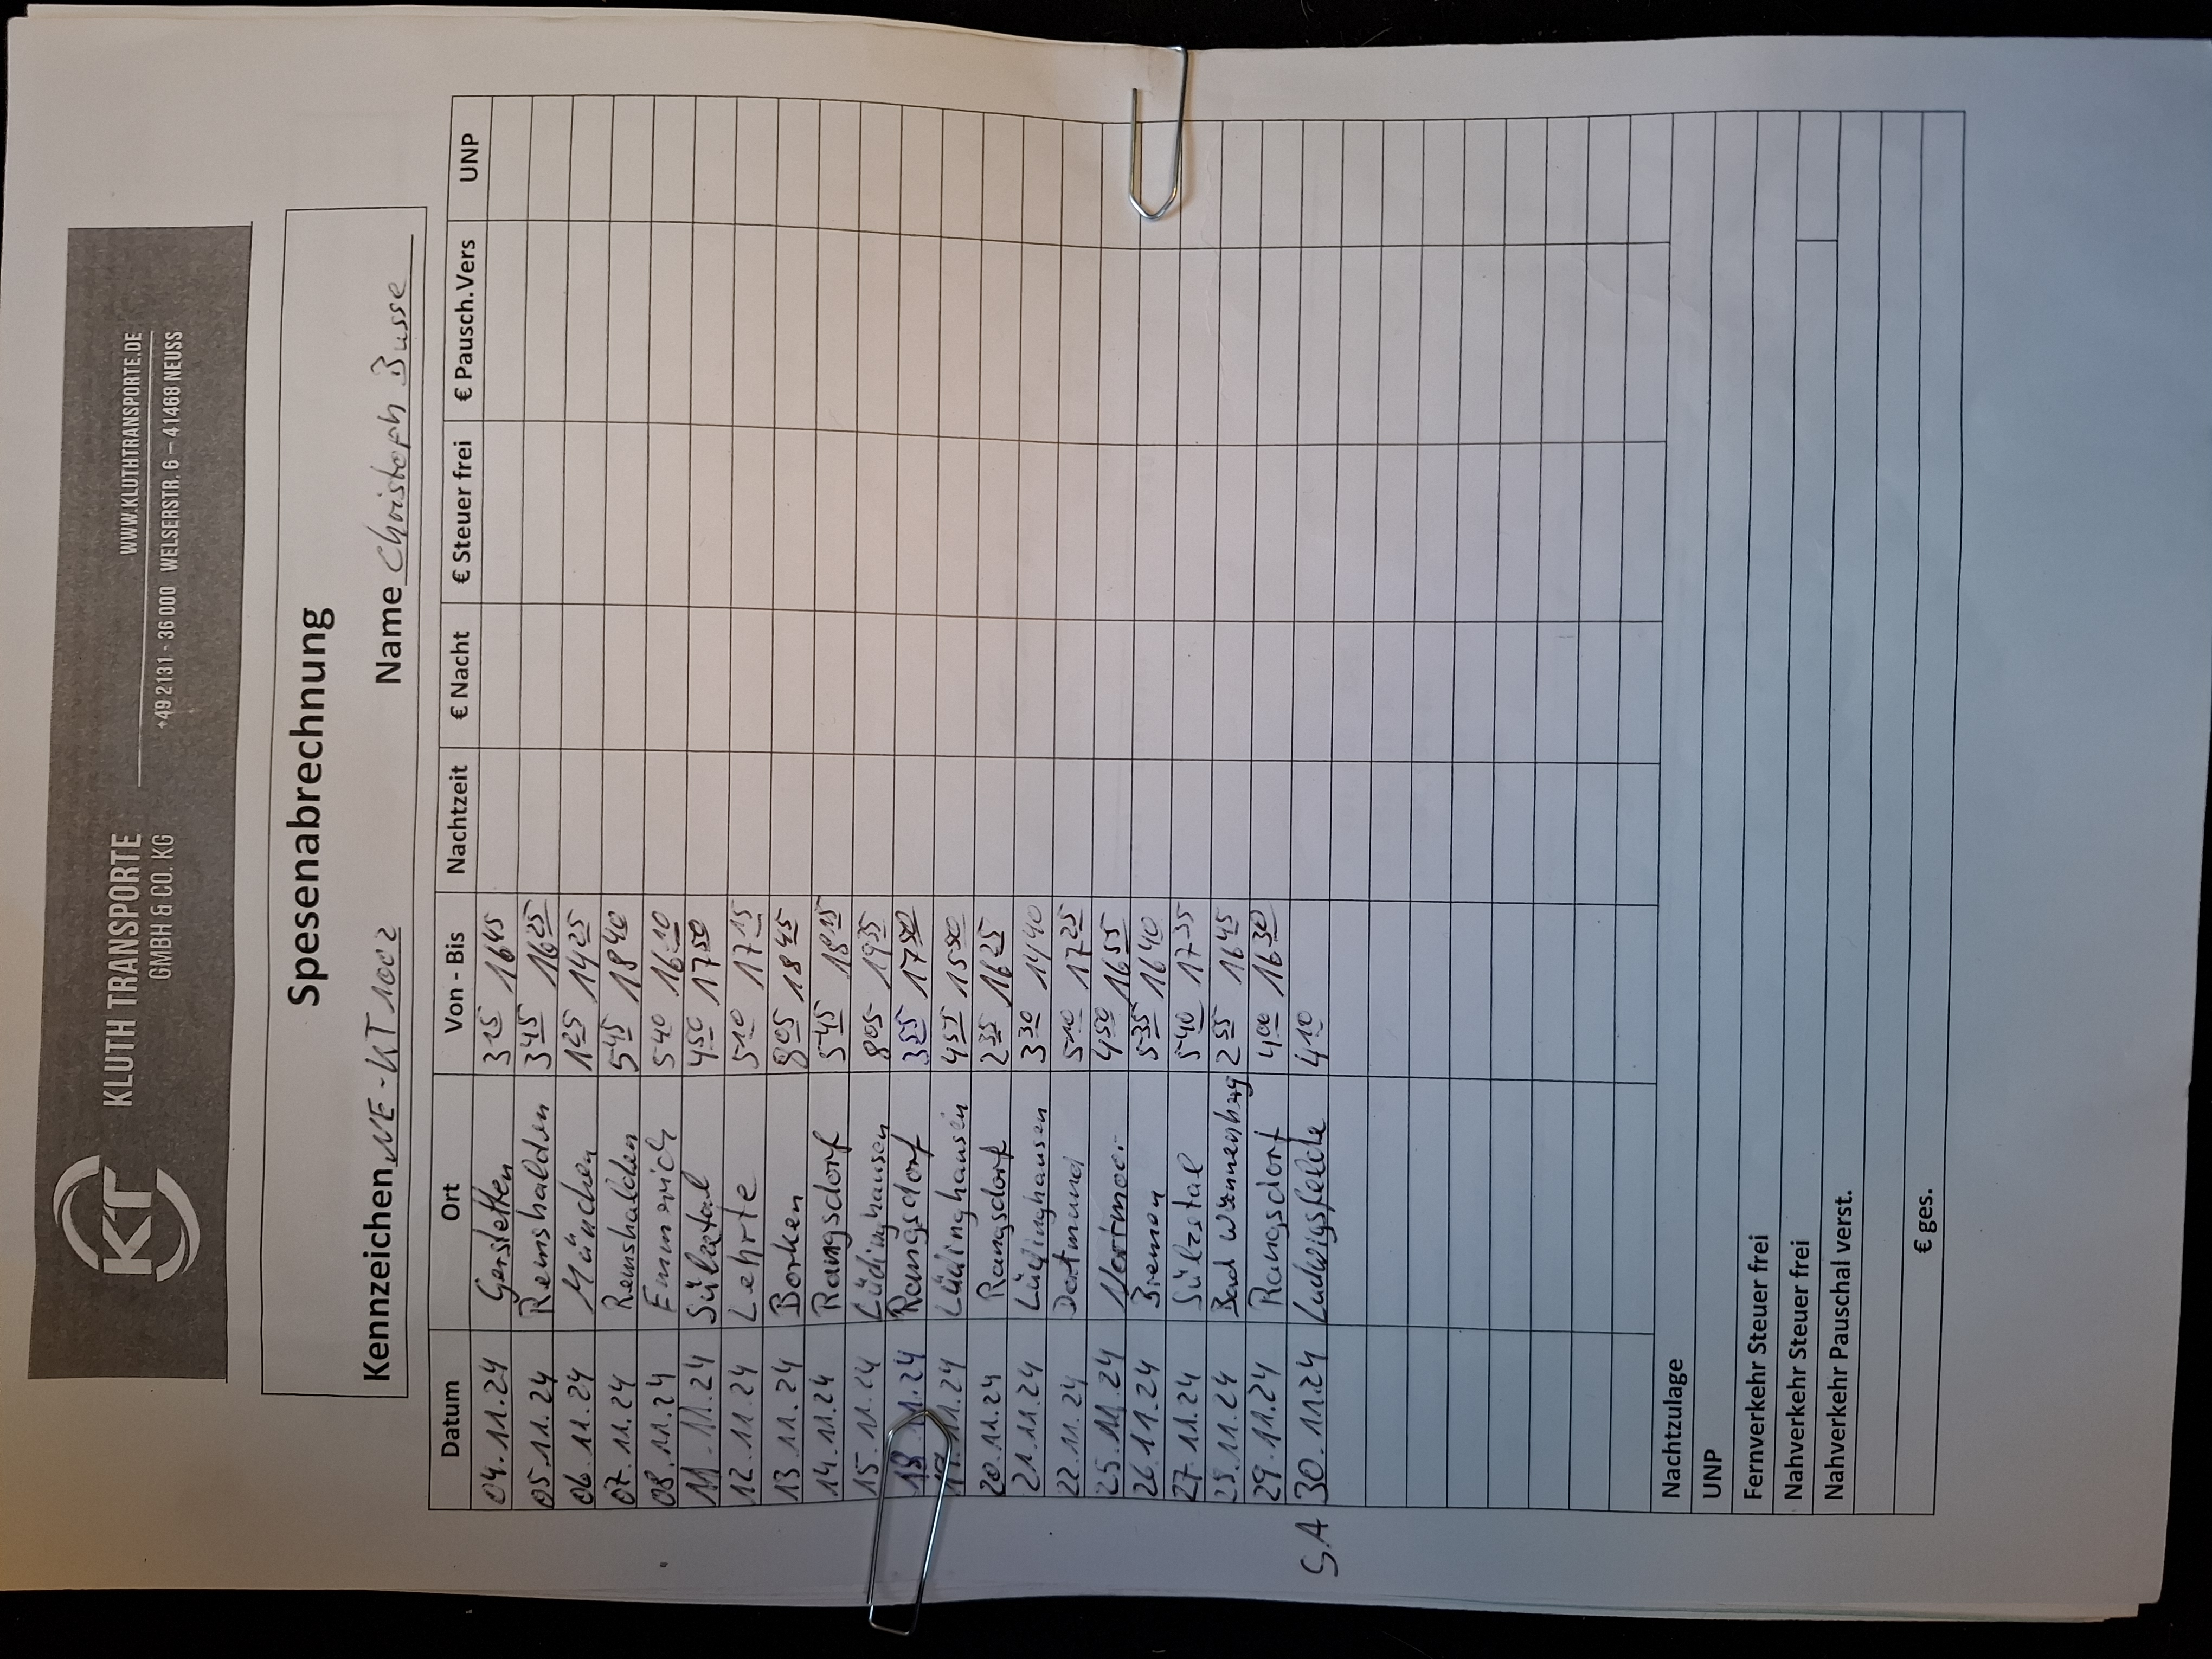 KT
KLUTH TRANSPORTE
GMBH & CO. KG
WWW.KLUTHTRANSPORTE.DE
+49 2131 - 36 000 WELSERSTR. 6 – 41468 NEUSS
Spesenabrechnung
Kennzeichen NE-KT 1002 Name Christoph Busse
Datum Ort Von - Bis Nachtzeit € Nacht € Steuer frei € Pausch.Vers UNP
04.11.24 Gerstetten 3 15 16 45
05.11.24 Remshalden 3 45 16 25
06.11.24 München 1 25 14 25
07.11.24 Remshalden 5 45 18 40
08.11.24 Emmerich 5 40 16 10
11.11.24 Sülzetal 4 50 17 50
12.11.24 Lehrte 5 10 17 15
13.11.24 Borken 8 05 18 45
14.11.24 Rangsdorf 5 45 18 15
15.11.24 Lüdinghausen 8 05 19 35
18.11.24 Rangsdorf 3 55 17 50
11.24 Lüdinghausen 4 55 15 50
20.11.24 Rangsdorf 2 35 16 25
21.11.24 Lüdinghausen 3 30 14 40
22.11.24 Dortmund 5 10 17 25
25.11.24 4 50 16 55
26.11.24 Bremen 5 35 16 40
27.11.24 Sülzetal 5 40 17 35
Bad Wünnenberg 2 55 16 45
29.11.24 Rangsdorf 4 00 16 30
SA 30.11.24 Ludwigsfelde 4 10
Nachtzulage
UNP
Fernverkehr Steuer frei
Nahverkehr Steuer frei
Nahverkehr Pauschal verst.
€ ges.